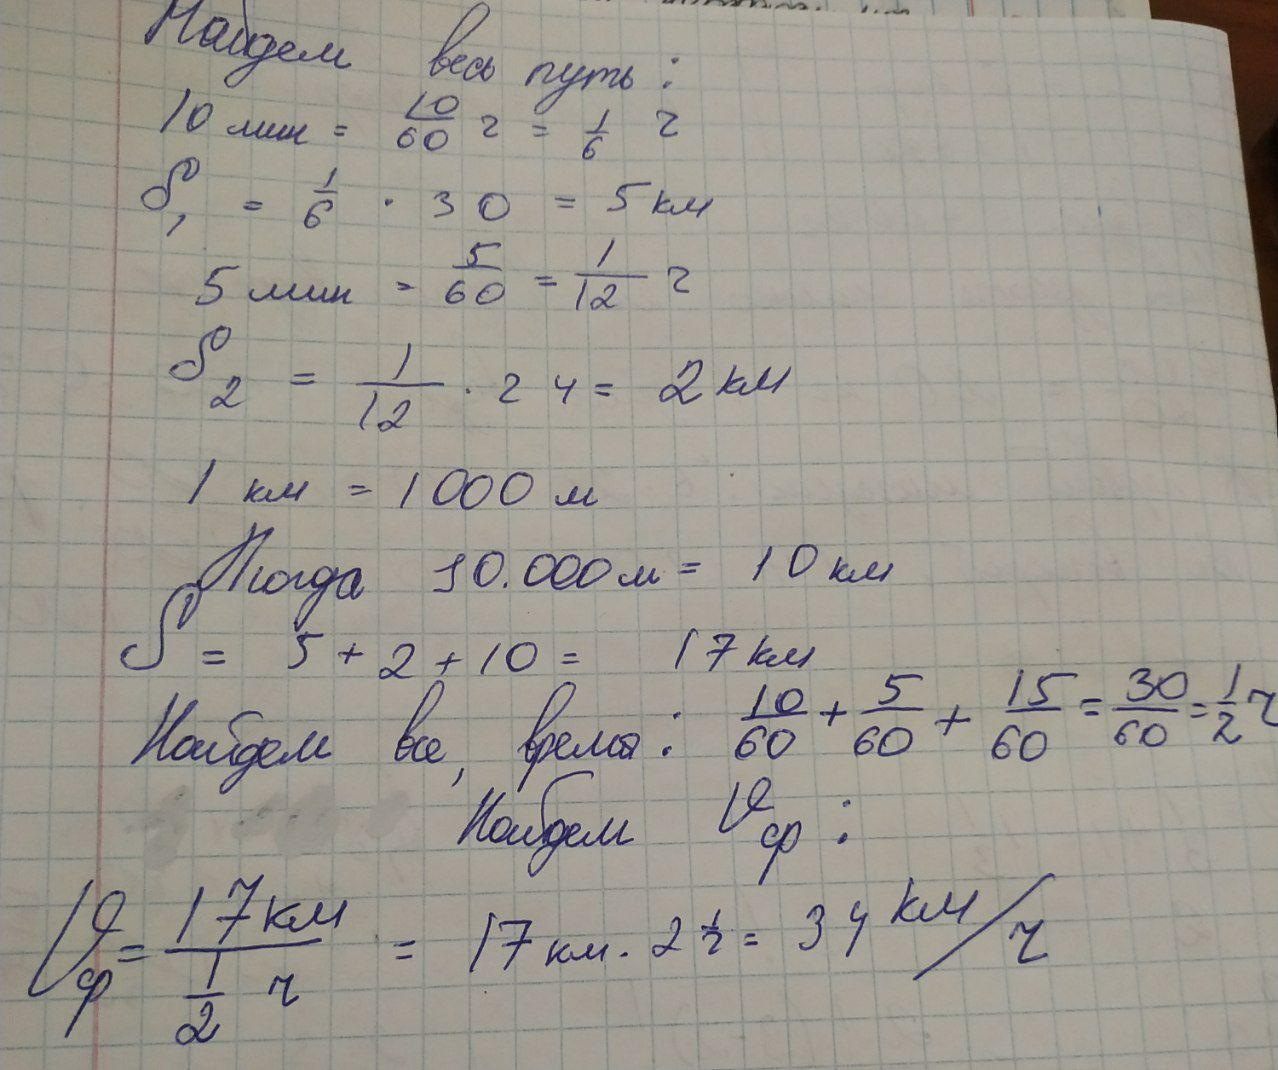 Найдем весь путь:
10 мин = 10/60 ч = 1/6 ч
S₁ = 1/6 · 30 = 5 км
5 мин = 5/60 = 1/12 ч
S₂ = 1/12 · 24 = 2 км
1 км = 1000 м
Тогда 10.000 м = 10 км
S = 5 + 2 + 10 = 17 км
Найдем все, время: 10/60 + 5/60 + 15/60 = 30/60 = 1/2 ч
Найдем Vср:
Vср = 17 км / 1/2 ч = 17 км · 2 1/ч = 34 км/ч